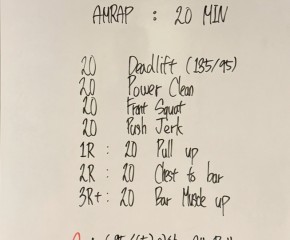 AMRAP : 20 MIN
20 Deadlift (135/95)
20 Power Clean
20 Front Squat
20 Push Jerk
1R : 20 Pull up
2R : 20 Chest to bar
3R+ : 20 Bar Muscle up